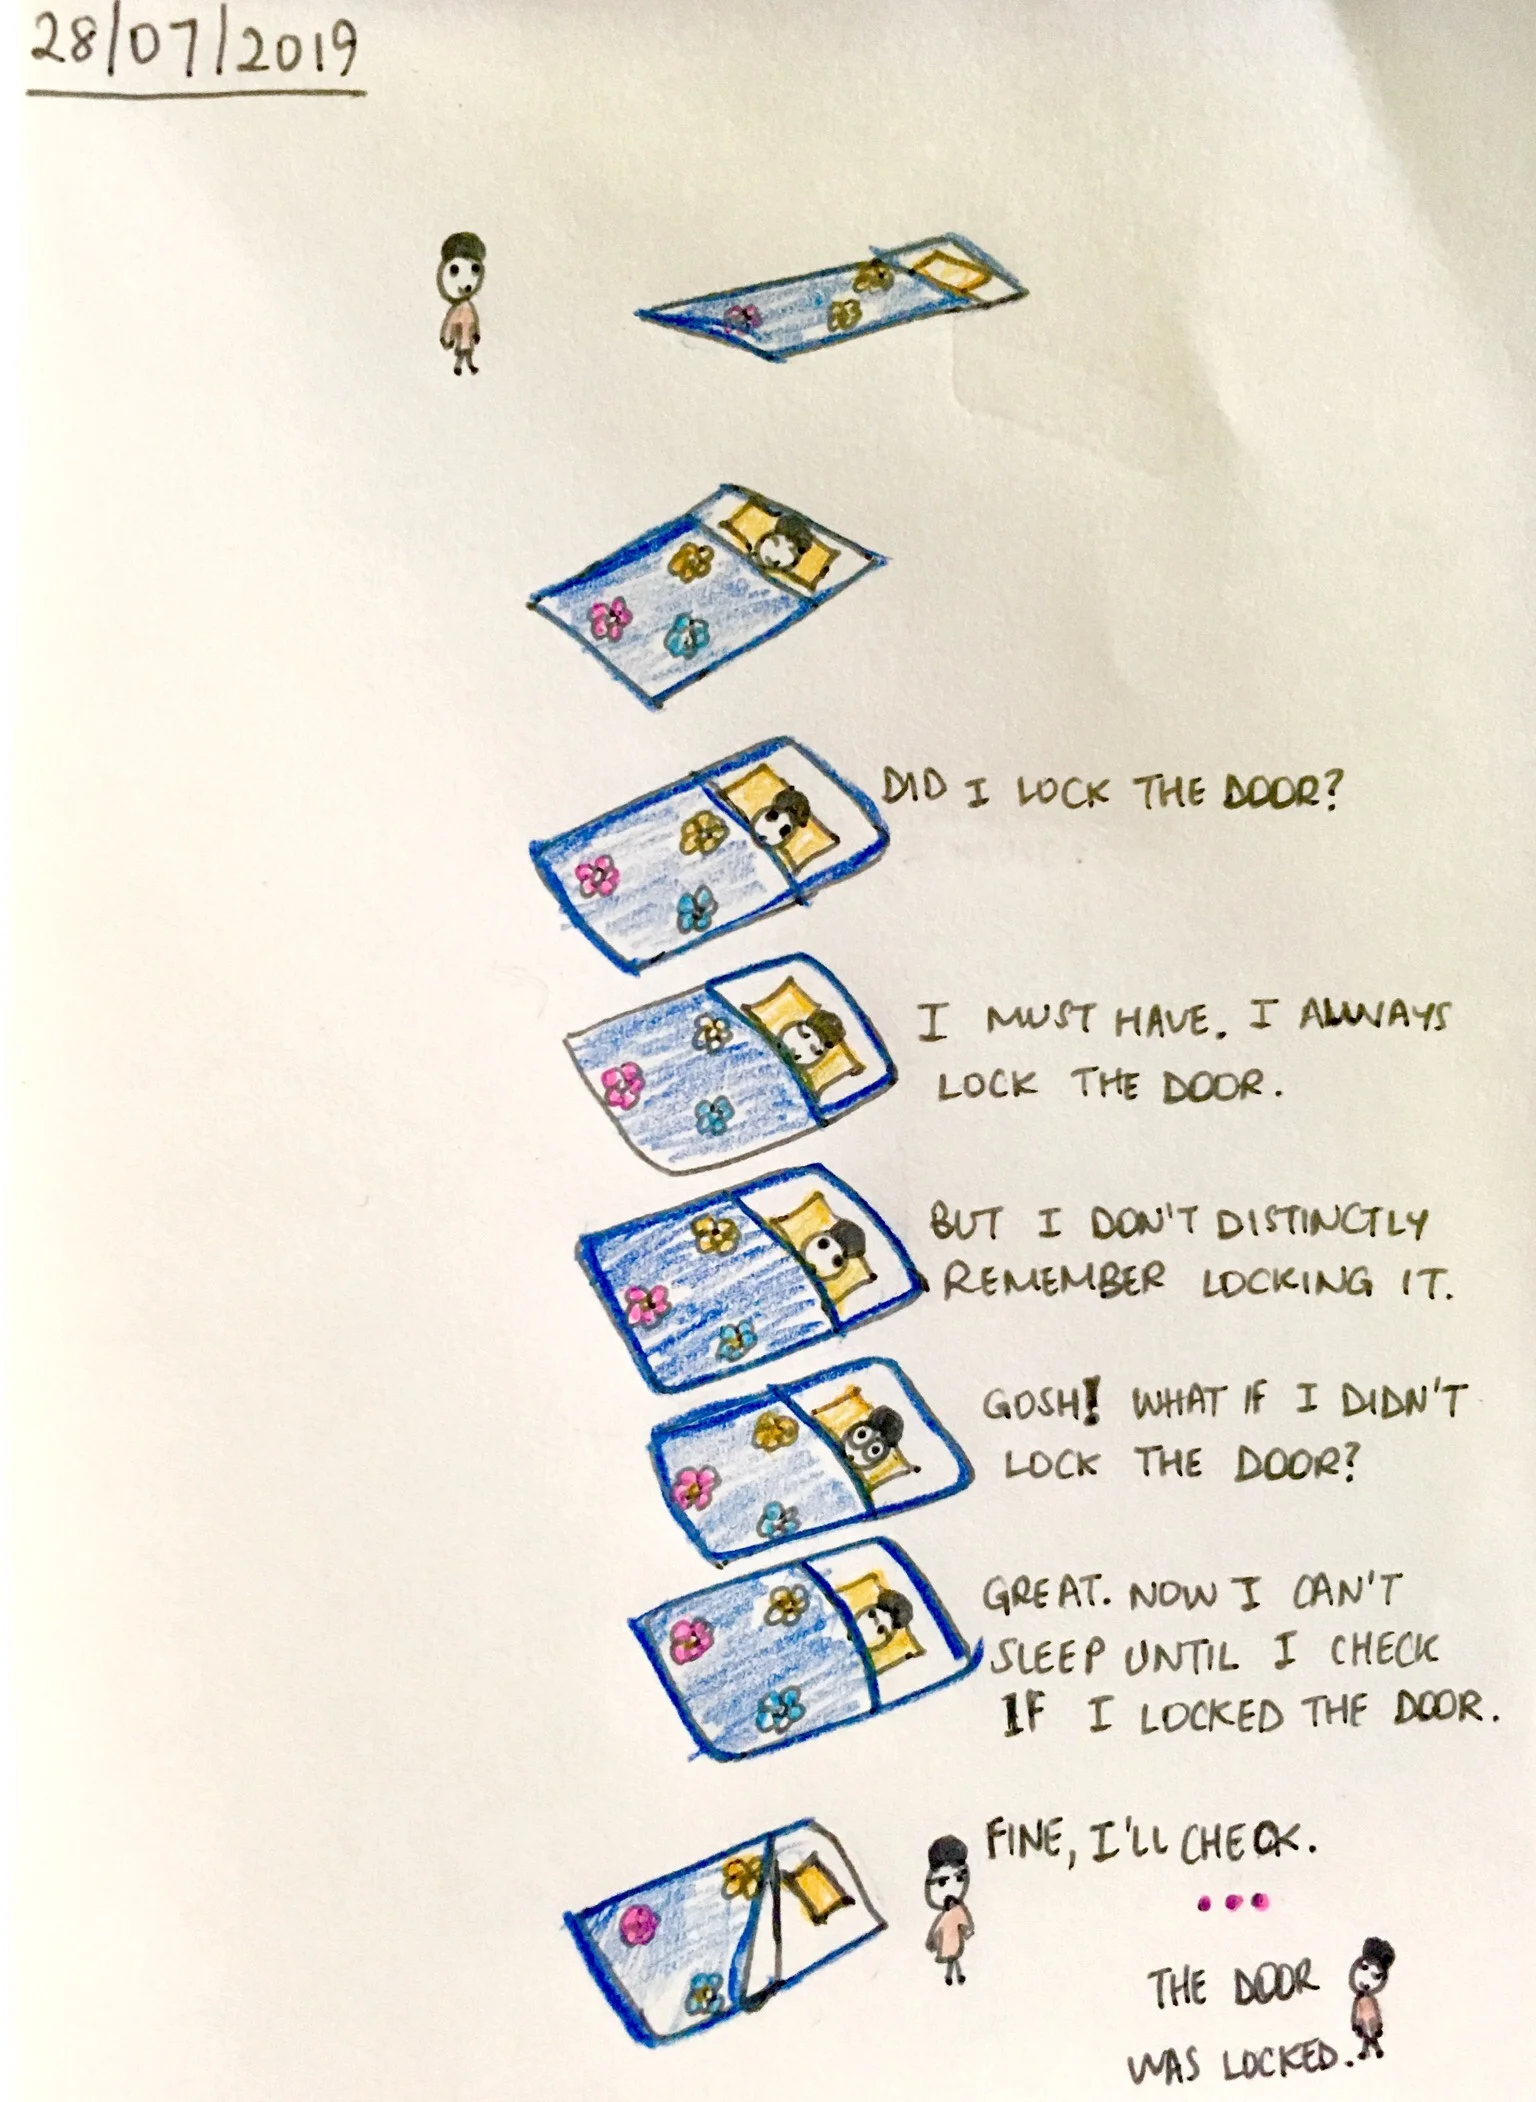 28/07/2019
DID I LOCK THE DOOR?
I MUST HAVE. I ALWAYS
LOCK THE DOOR.
BUT I DON'T DISTINCTLY
REMEMBER LOCKING IT.
GOSH! WHAT IF I DIDN'T
LOCK THE DOOR?
GREAT. NOW I CAN'T
SLEEP UNTIL I CHECK
IF I LOCKED THE DOOR.
FINE, I'LL CHECK.
...
THE DOOR
WAS LOCKED.